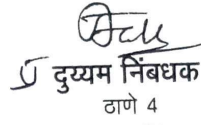 दुय्यम निंबधक
ठाणे 4